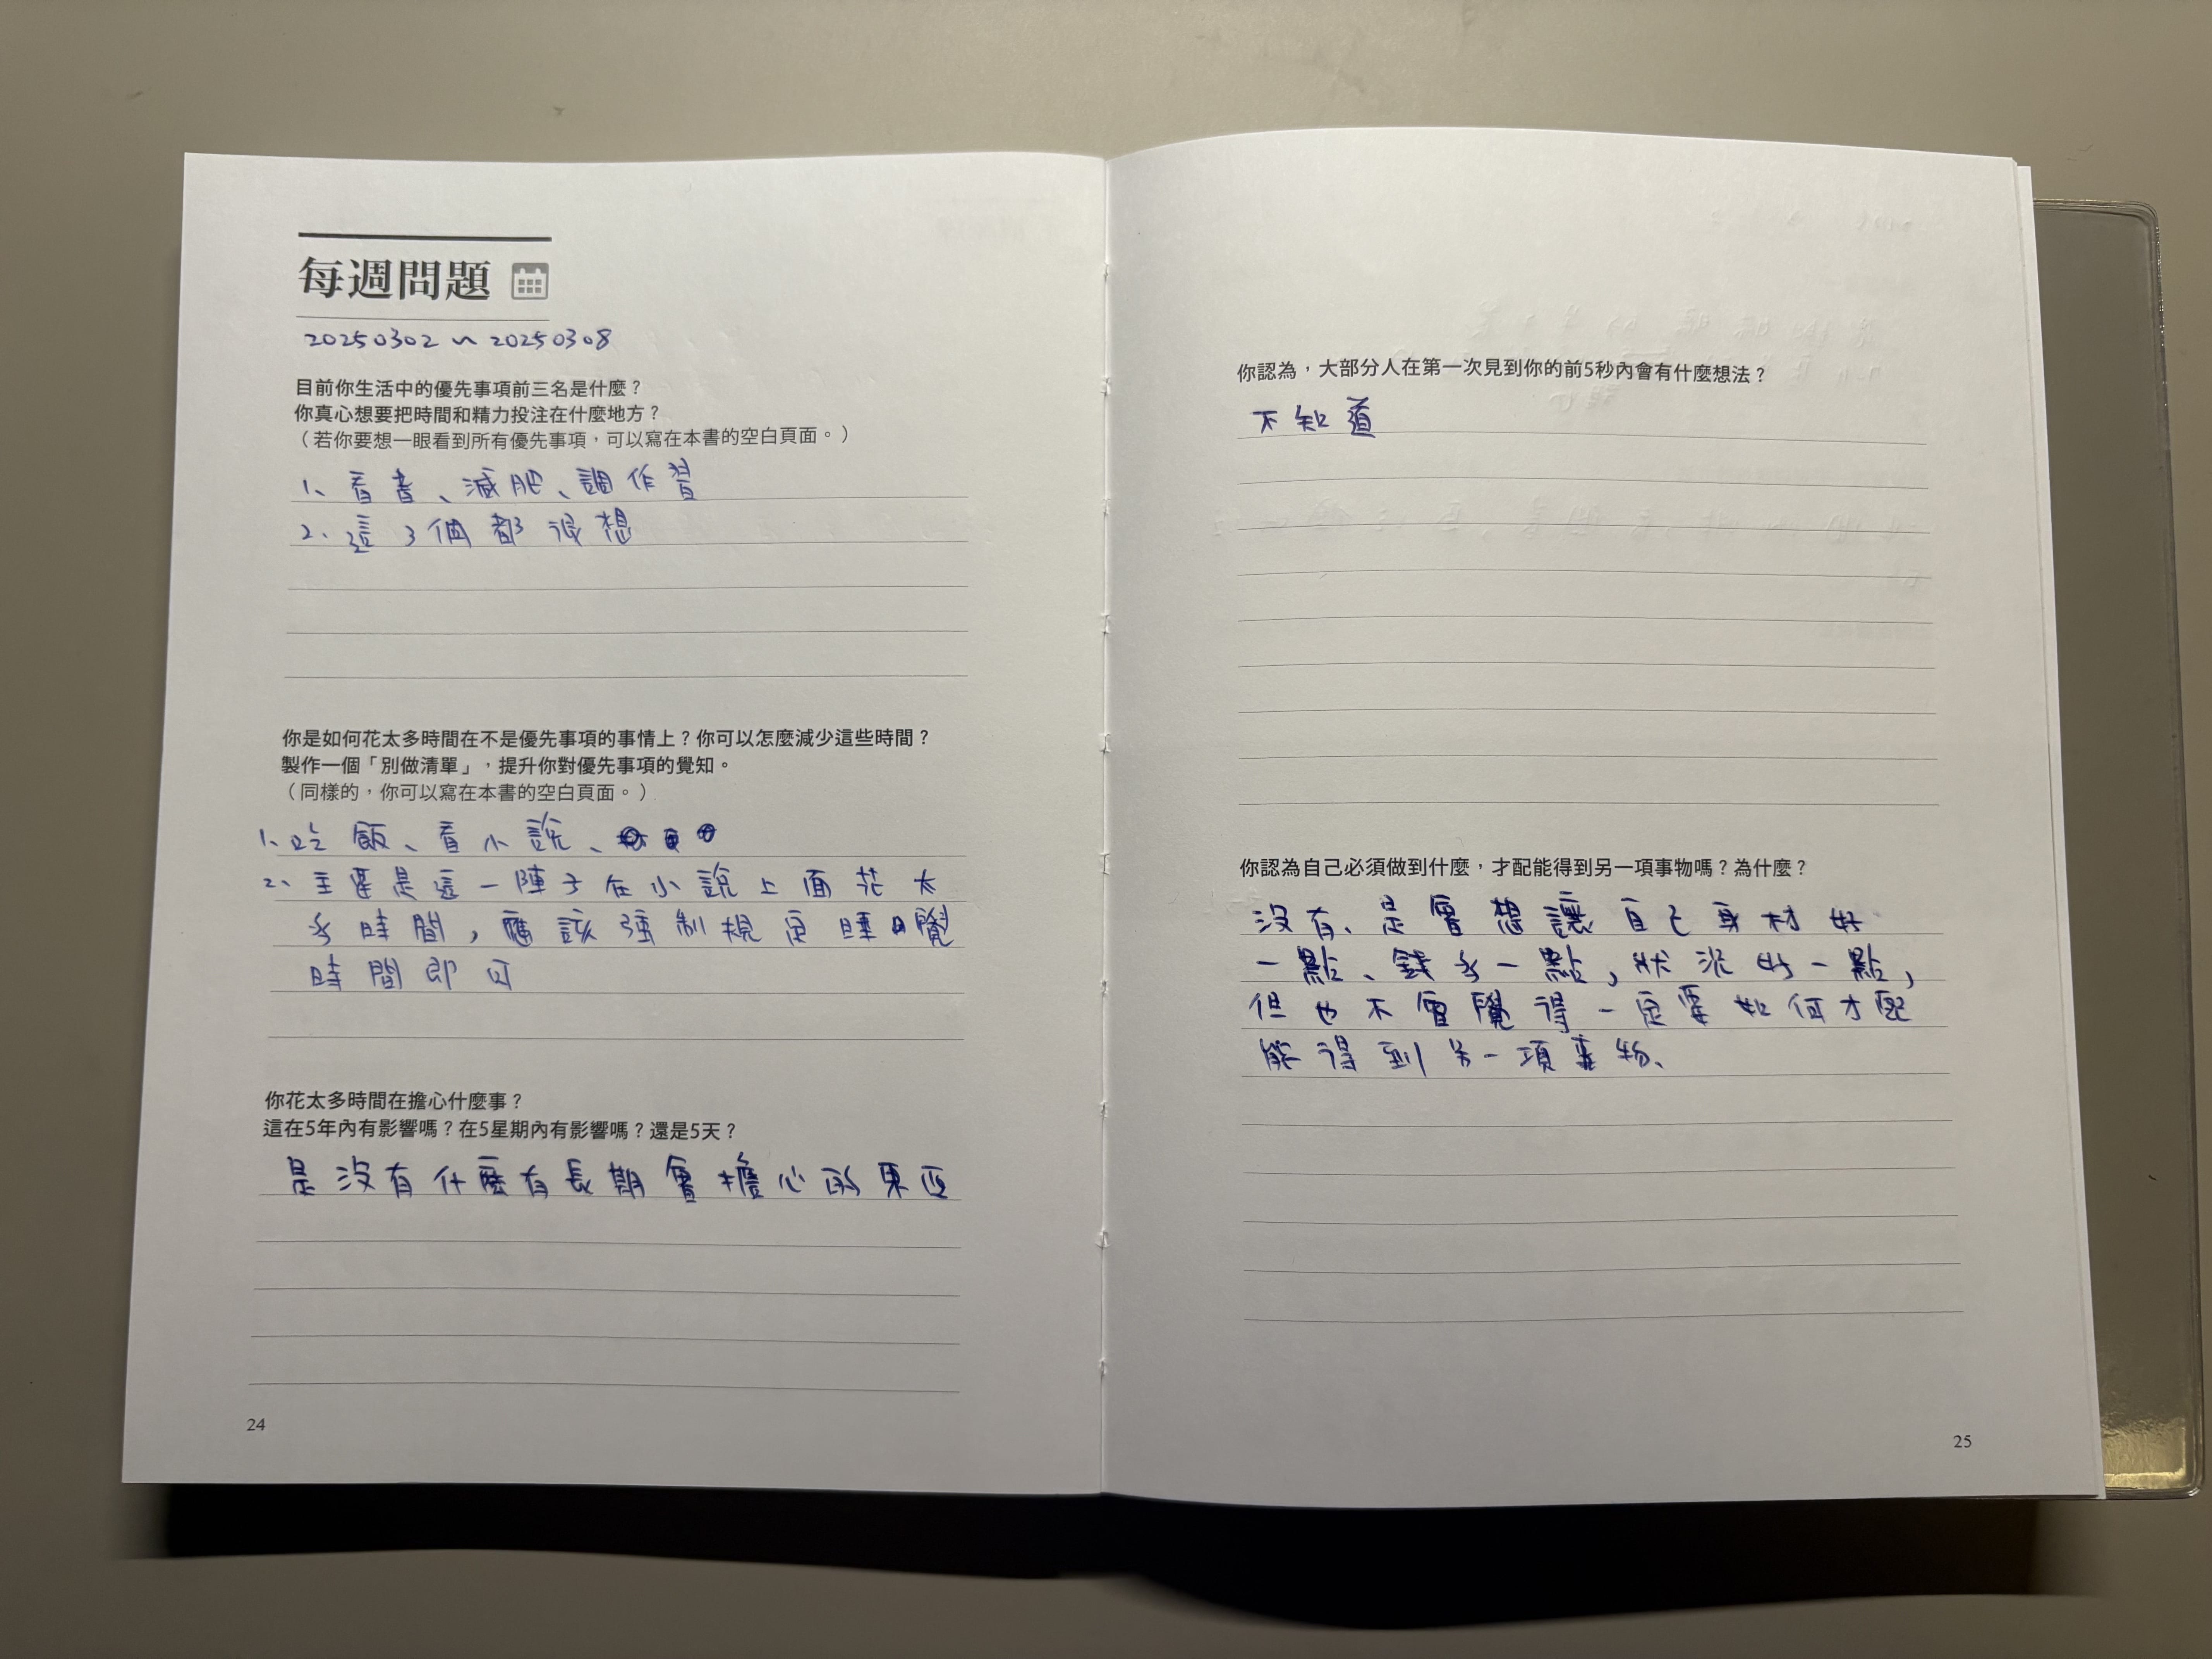 每週問題
20250302 ~ 20250308
目前你生活中的優先事項前三名是什麼？
你真心想要把時間和精力投注在什麼地方？
（若你要想一眼看到所有優先事項，可以寫在本書的空白頁面。）
1、看書、減肥、調作習
2、這3個都很想
你是如何花太多時間在不是優先事項的事情上？你可以怎麼減少這些時間？
製作一個「別做清單」，提升你對優先事項的覺知。
（同樣的，你可以寫在本書的空白頁面。）
1、吃飯、看小說、
2、主要是這一陣子在小說上面花太
多時間，應該強制規定睡覺
時間即可
你花太多時間在擔心什麼事？
這在5年內有影響嗎？在5星期內有影響嗎？還是5天？
是沒有什麼有長期會擔心的東西
24
你認為，大部分人在第一次見到你的前5秒內會有什麼想法？
不知道
你認為自己必須做到什麼，才配能得到另一項事物嗎？為什麼？
沒有、是會想讓自己身材好
一點、錢多一點，狀況好一點，
但也不會覺得一定要如何才配
能得到另一項事物、
25